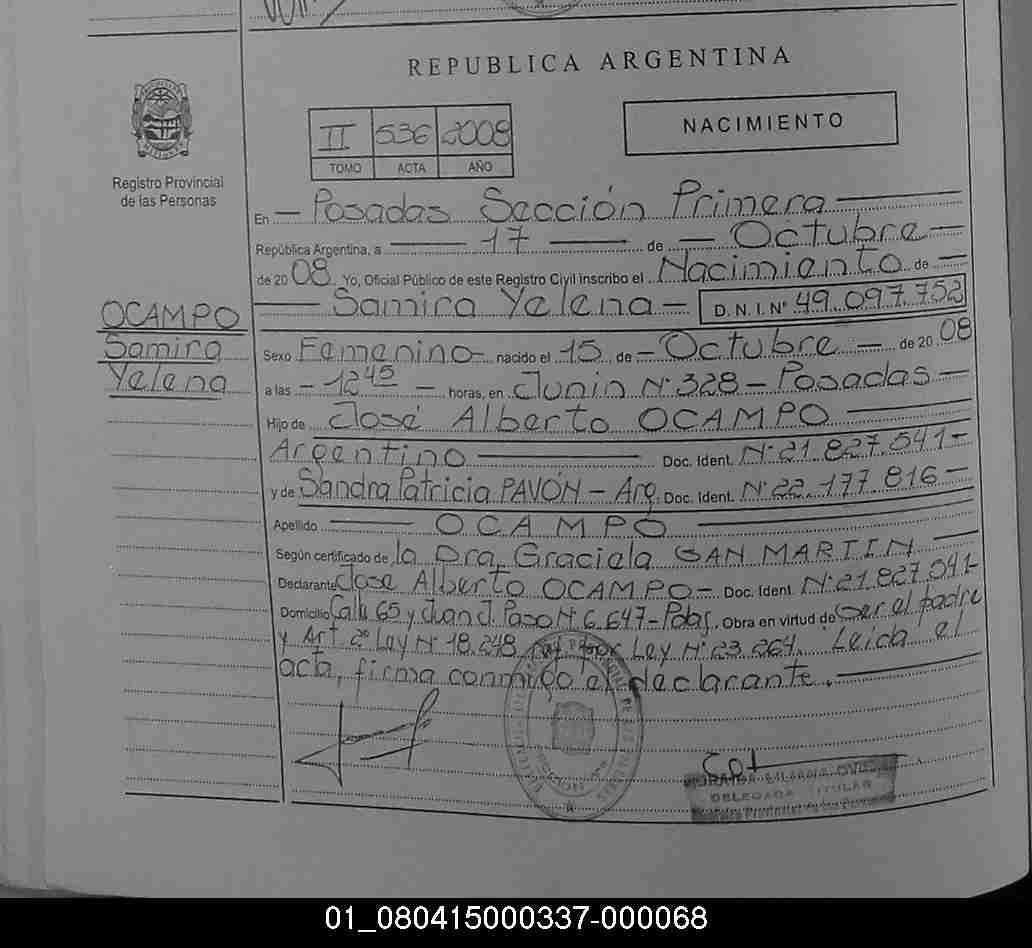 REPUBLICA ARGENTINA
NACIMIENTO
II 536 2008
TOMO ACTA AÑO
Registro Provincial
de las Personas
OCAMPO
Samira
Yelena
En — Posadas Sección Primera —
República Argentina, a — 17 — de — Octubre —
de 2008. Yo, Oficial Público de este Registro Civil inscribo el Nacimiento de —
— Samira Yelena — D.N.I. Nº 49.097.752
Sexo Femenino — nacido el 15 de — Octubre — de 2008
a las — 12 45 — horas, en Junin Nº 328 — Posadas —
Hijo de José Alberto OCAMPO —
Argentino — Doc. Ident. Nº 21.827.041 —
y de Sandra Patricia PAVÓN — Arg. Doc. Ident. Nº 22.177.816 —
Apellido — OCAMPO —
Según certificado de la Dra. Graciela SAN MARTIN —
Declarante Jose Alberto OCAMPO — Doc. Ident. Nº 21.827.041 —
Domicilio Calle 65 y Juan J. Paso Nº 6.647 — Pdas. Obra en virtud de Ser el padre
y Art. 2º Ley Nº 18.248 por Ley Nº 23.264. Leida el
acta, firma conmigo el declarante. —
DELEGADA TITULAR
Registro Provincial de las Personas
01_080415000337-000068